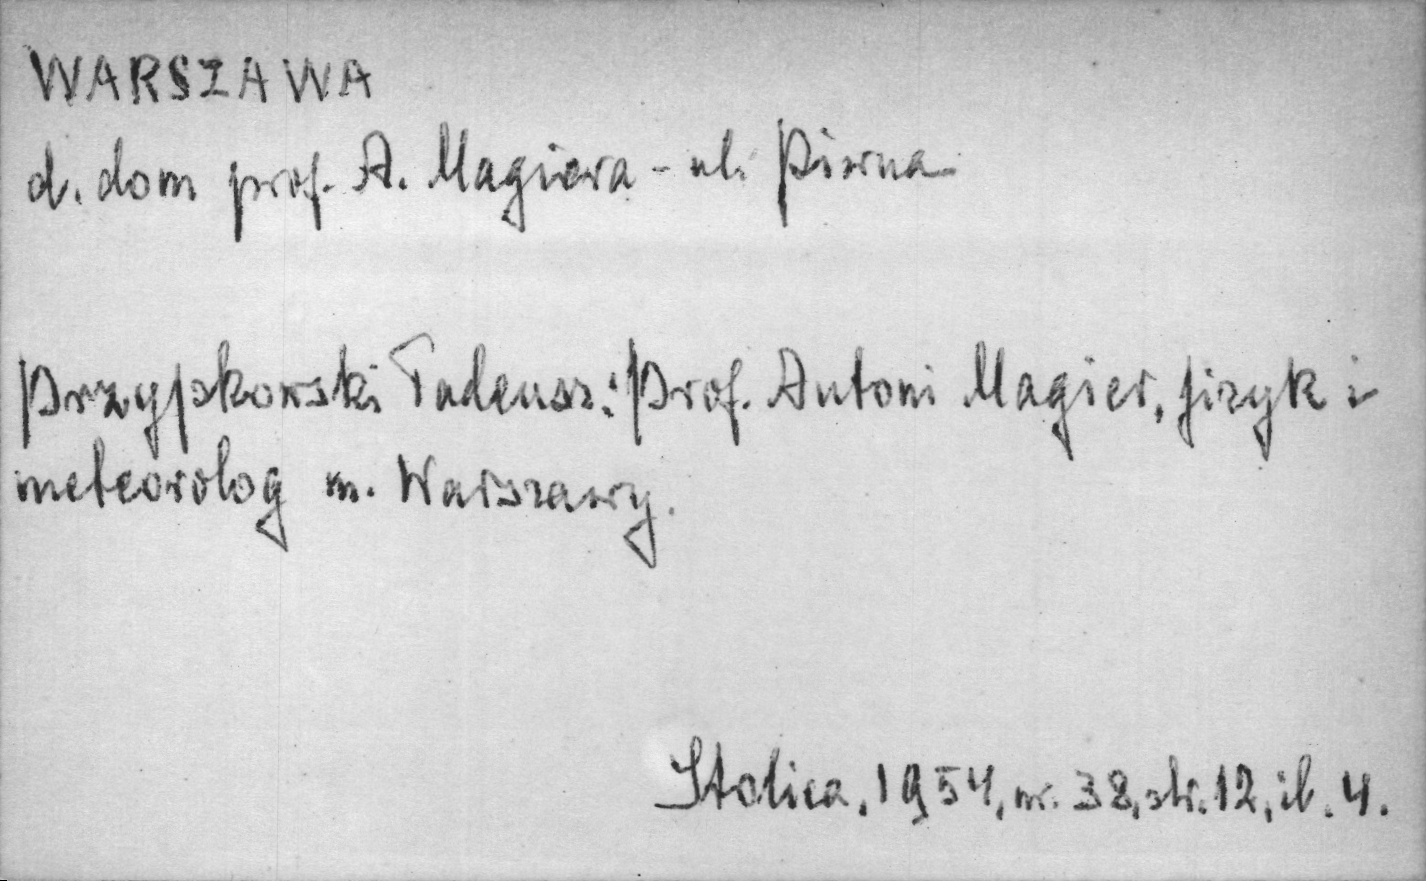 WARSZAWA
d. dom prof. A. Magiera - ul. Piwna
Przypkowski Tadeusz: Prof. Antoni Magier, fizyk i
meteorolog m. Warszawy.
Stolica, 1954, nr. 38, str. 12, il. 4.